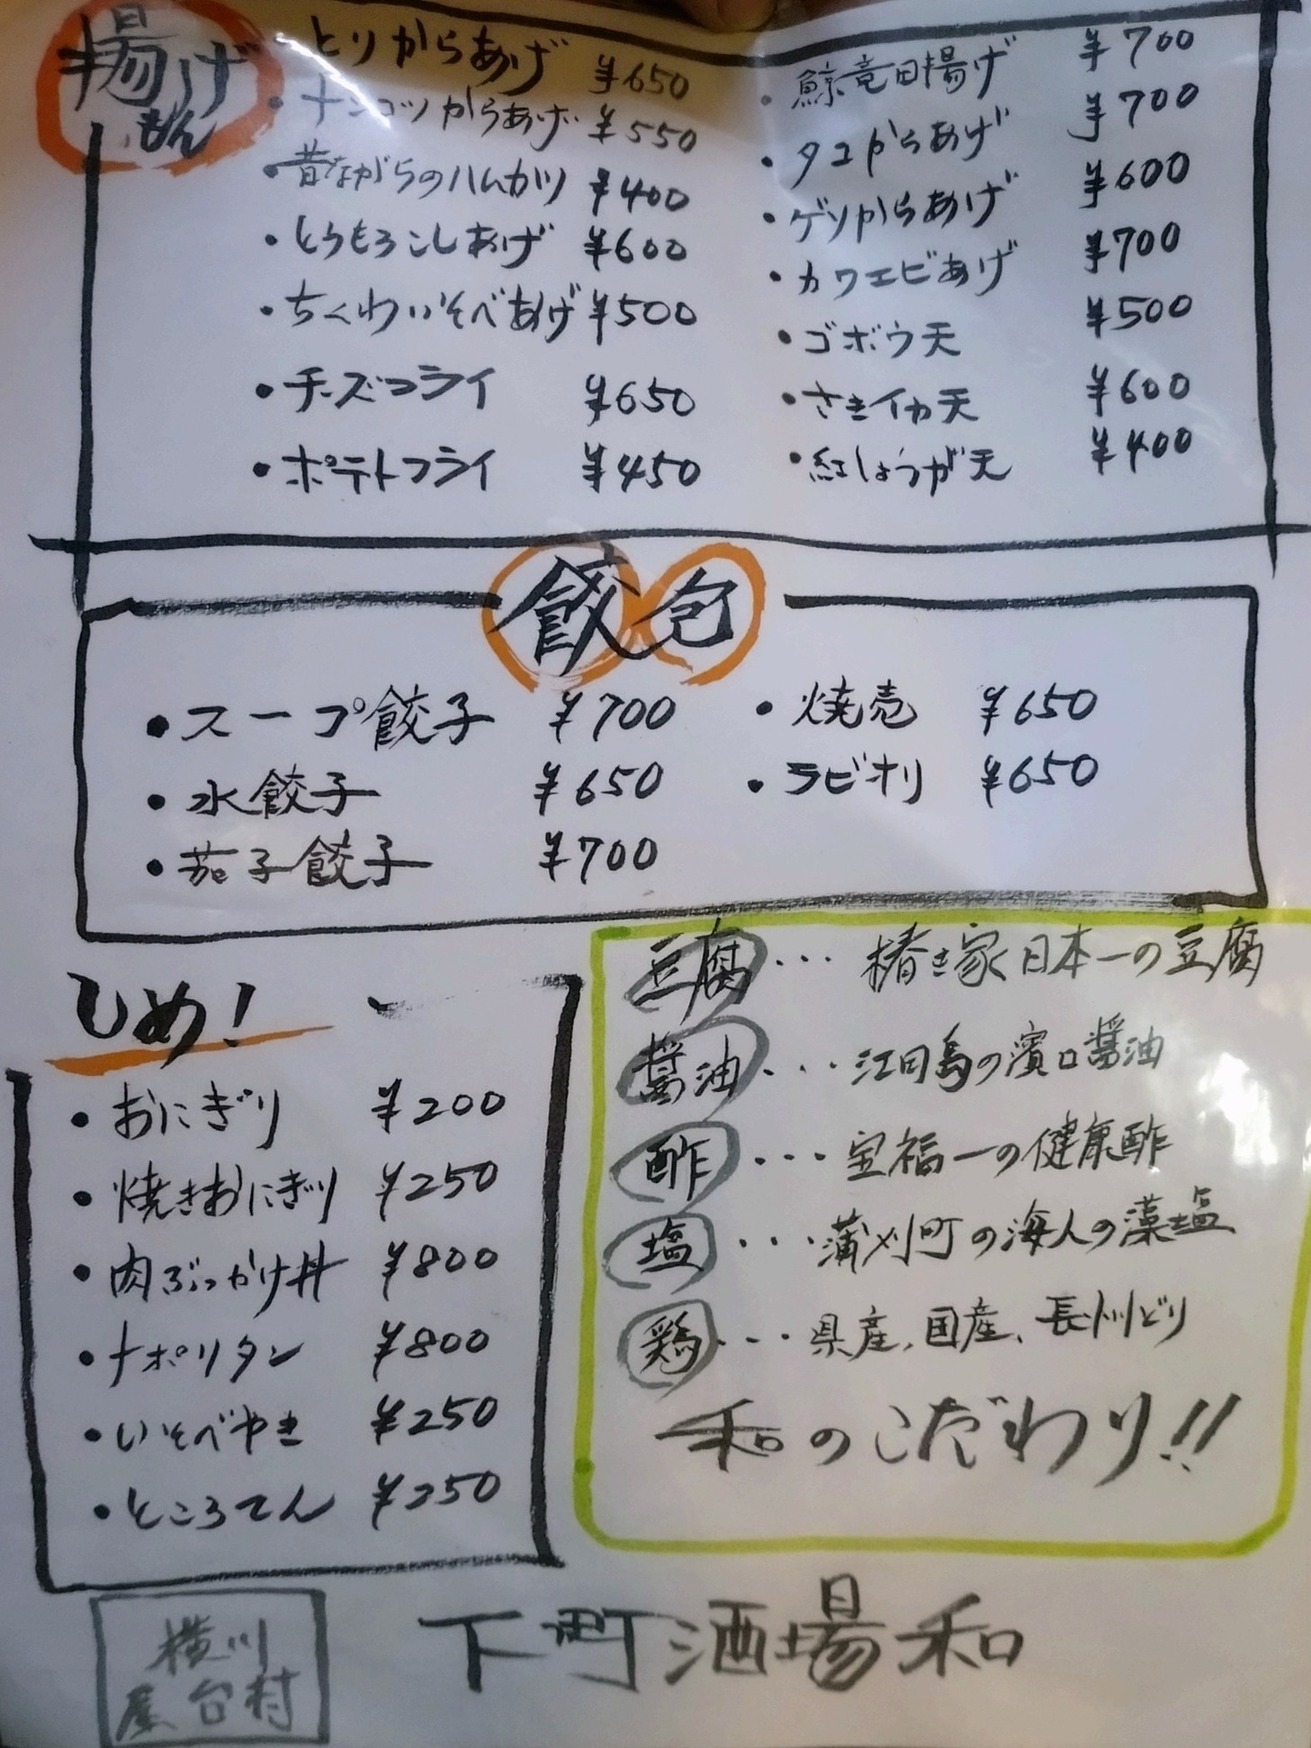 揚げもん
とりからあげ ¥650
・ナンコツからあげ ¥550
・昔ながらのハムカツ ¥400
・とうもろこしあげ ¥600
・ちくわいそべあげ ¥500
・チーズフライ ¥650
・ポテトフライ ¥450
・鯨竜田揚げ ¥700
・タコからあげ ¥700
・ゲソからあげ ¥600
・カワエビあげ ¥700
・ゴボウ天 ¥500
・さきイカ天 ¥600
・紅しょうが天 ¥400
餃包
・スープ餃子 ¥700
・水餃子 ¥650
・茄子餃子 ¥700
・焼売 ¥650
・ラビオリ ¥650
しめ!
・おにぎり ¥200
・焼きおにぎり ¥250
・肉ぶっかけ丼 ¥800
・ナポリタン ¥800
・いそべやき ¥250
・ところてん ¥250
豆腐・・・椿き家日本一の豆腐
醤油・・・江田島の濱口醤油
酢・・・宝福一の健康酢
塩・・・蒲刈町の海人の藻塩
鶏・・・県産、国産、長州どり
和のこだわり!!
横川
屋台村
下町酒場和